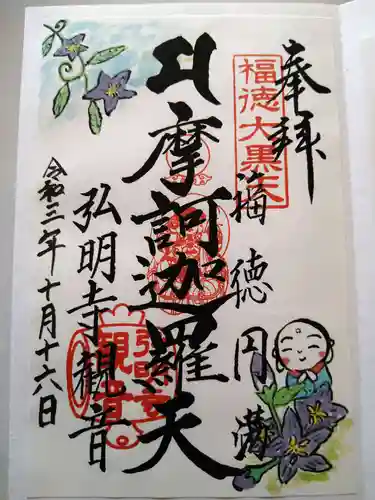 奉拝
福徳大黒天
福徳円満
摩訶迦羅天
弘明寺観音
令和三年十月十六日